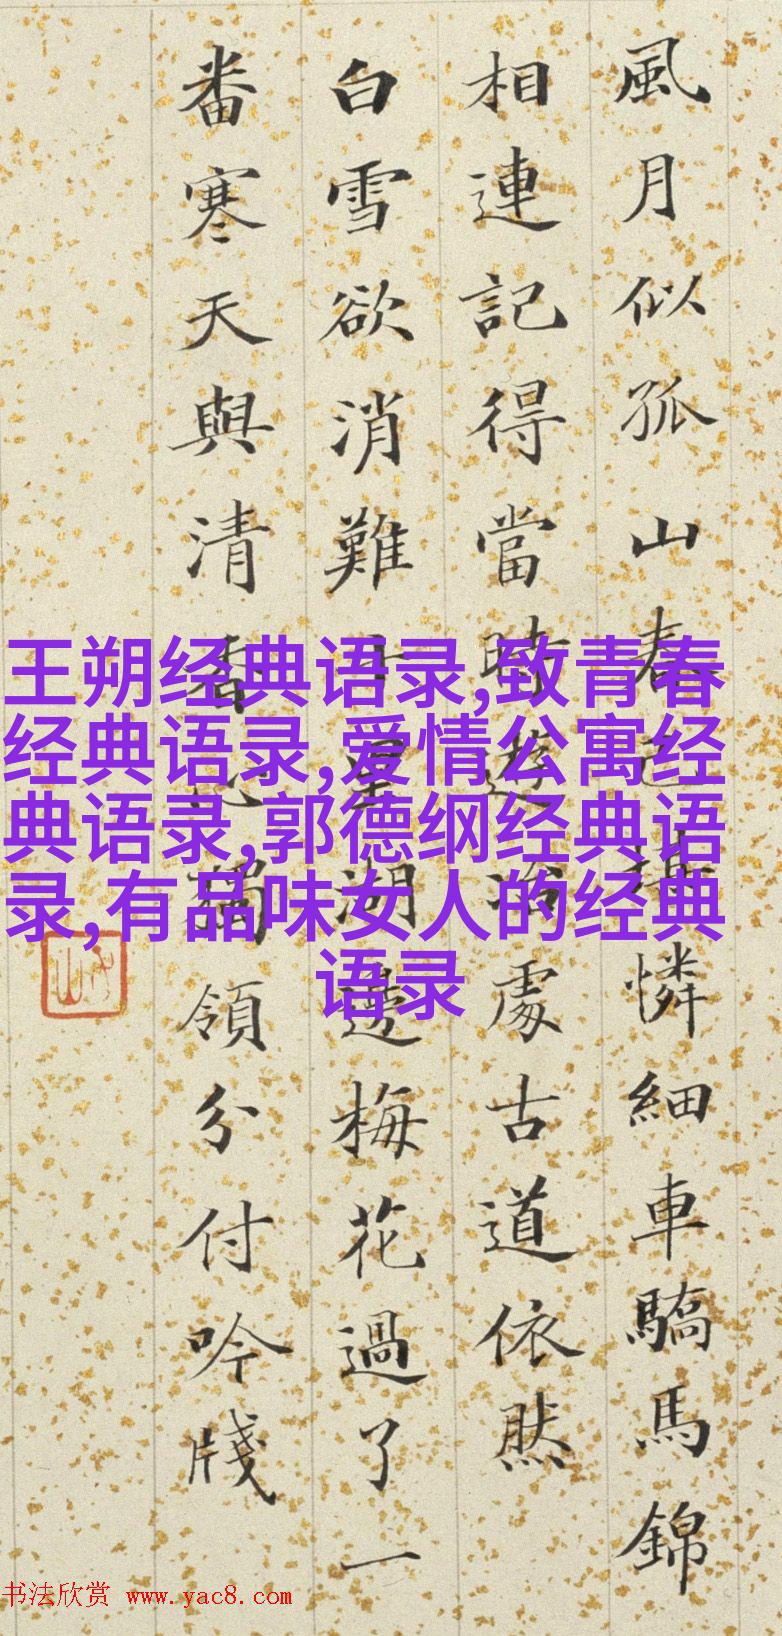 風月似孤山春已堪憐細車驕馬錦
相連記得當時遊冶處古道依然
白雪欲消難十里湖邊梅花過了一
番寒天與清香心獨領分付吟牋
王朔经典语录,致青春
经典语录,爱情公寓经
典语录,郭德纲经典语
录,有品味女人的经典
语录
书法欣赏 www.yac8.com